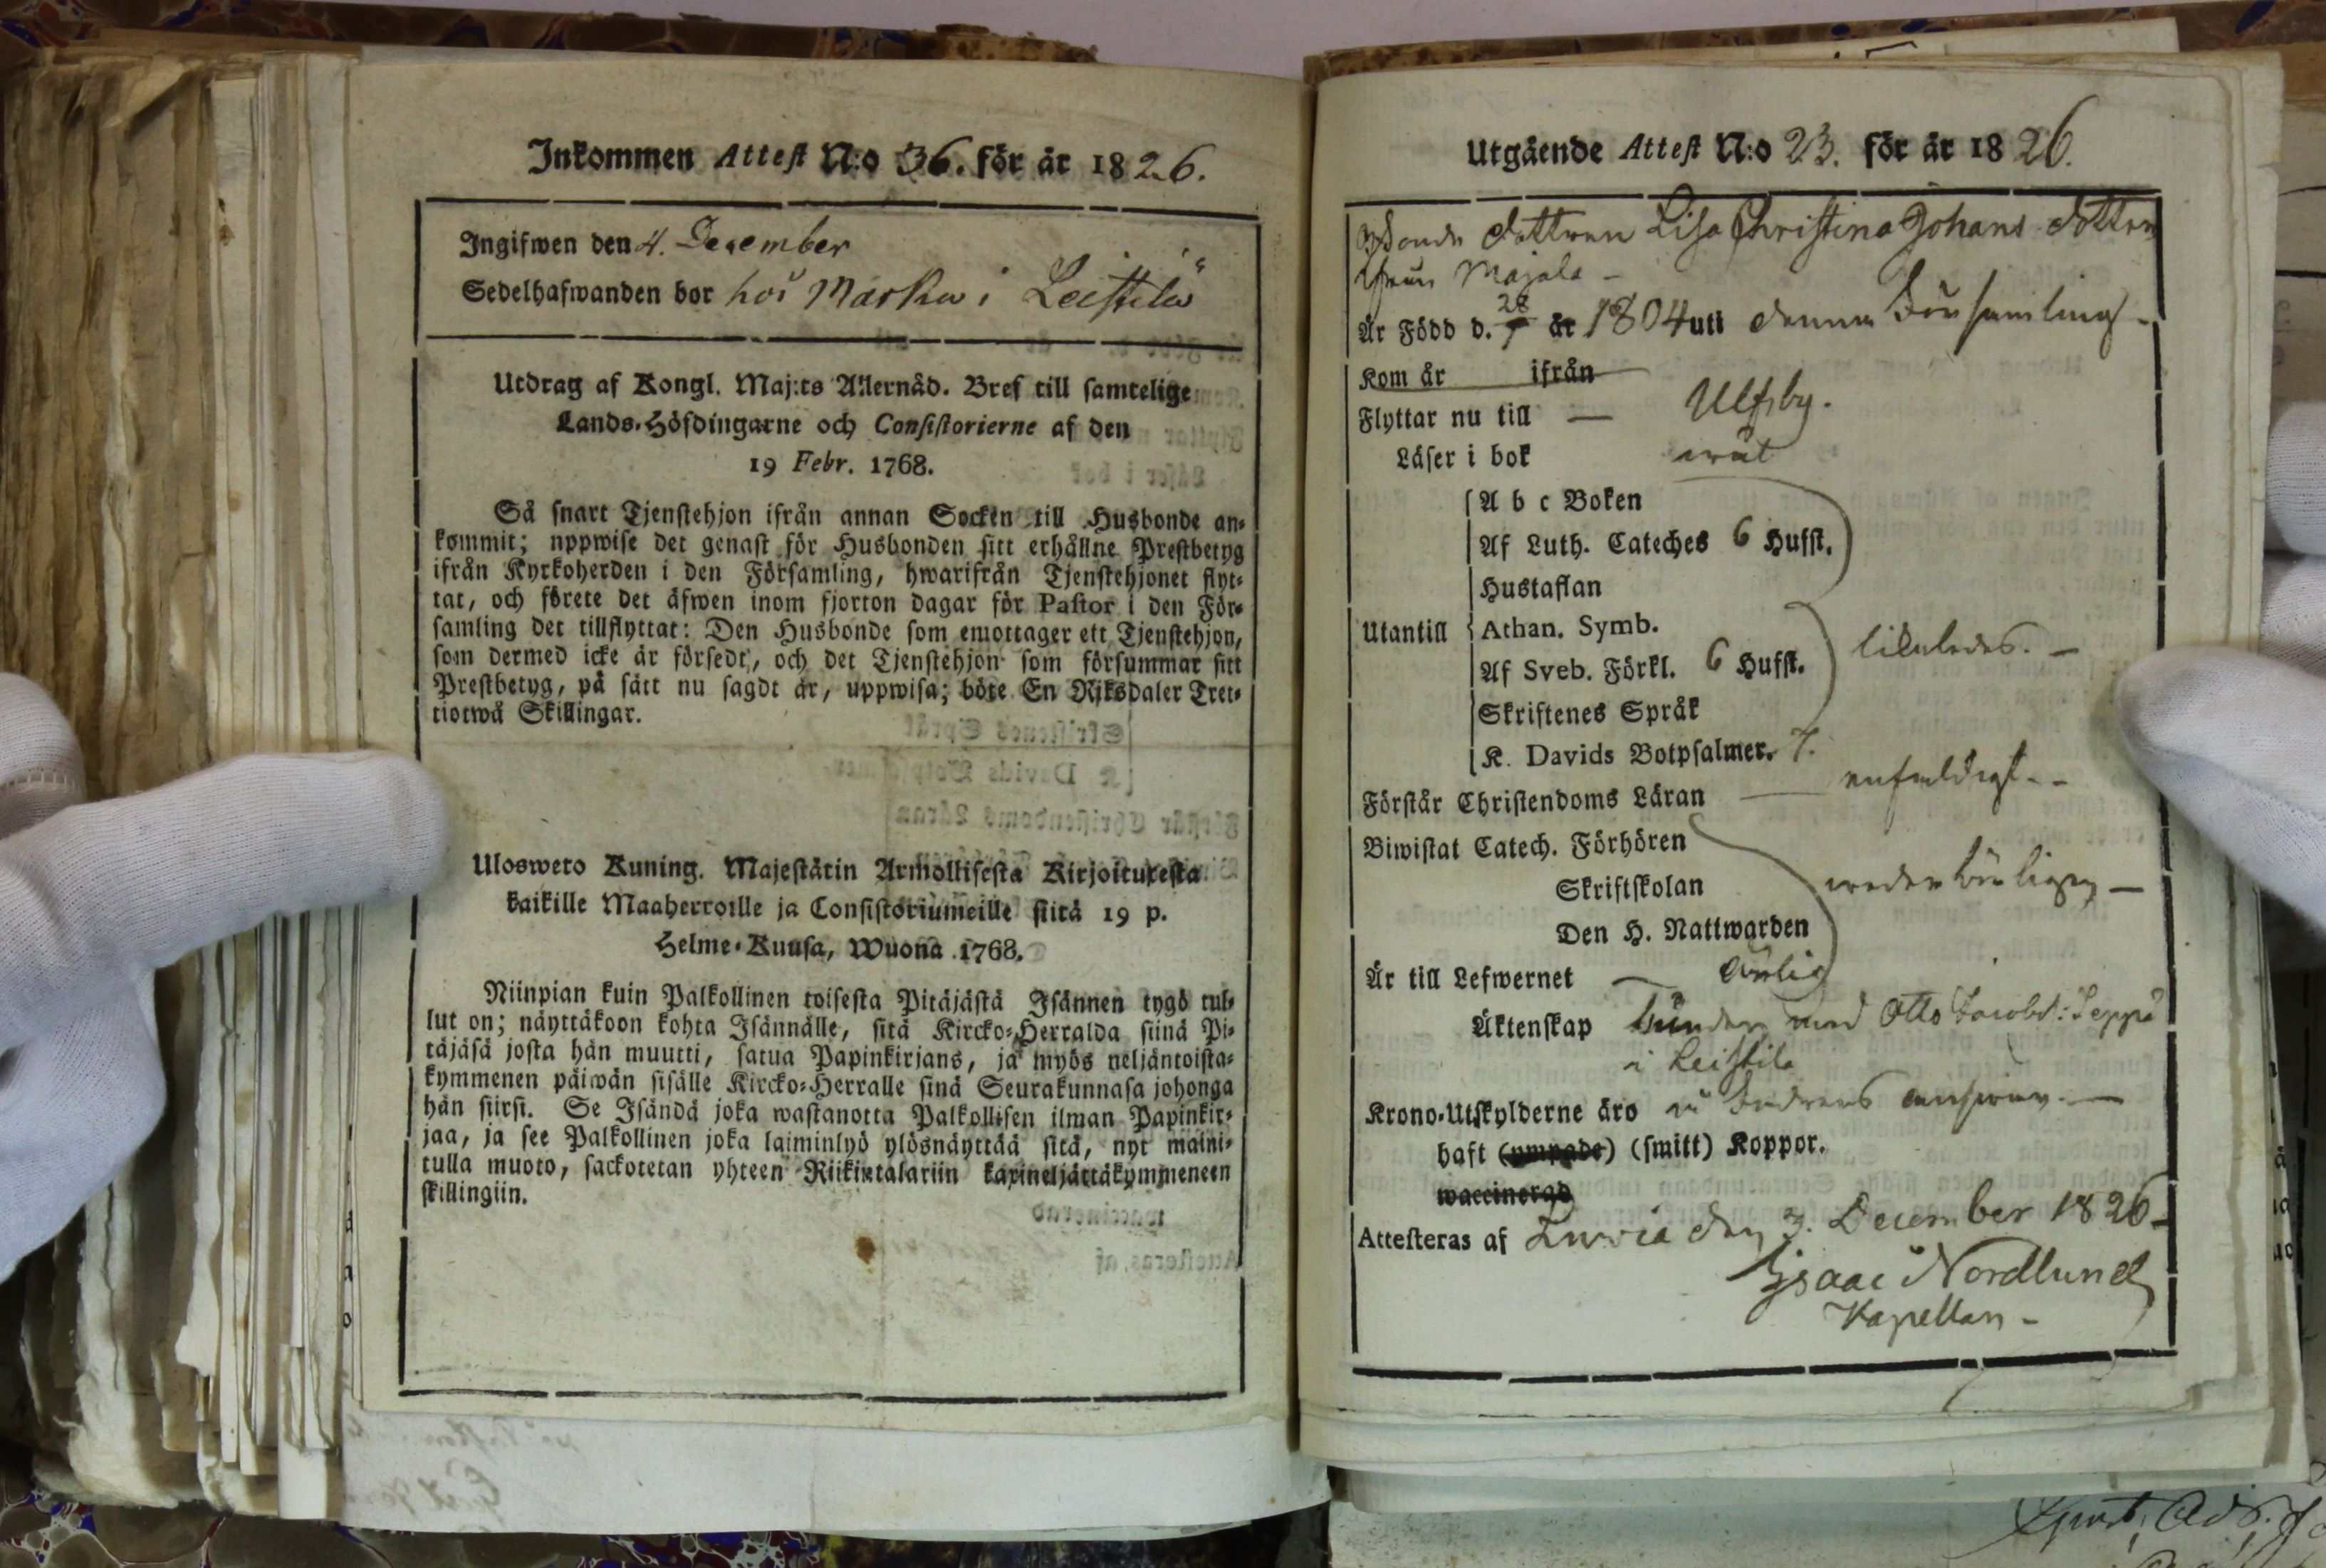 Inkommen Attest N:o 36. för år 1826.
Ingifwen den 4. December
Sedelhafwanden bor hos Marku i Leistilä
Utdrag af Kongl. Maj:ts Allernåd. Bref till samtelige
Lands-Höfdingarne och Consistorierne af den
19 Febr. 1768.
Så snart Tjenstehjon ifrån annan Socken till Husbonde an-
kommit; uppwise det genast för Husbonden sitt erhållne Prestbetyg
ifrån Kyrkoherden i den Församling, hwarifrån Tjenstehjonet flyt-
tat, och förete det äfwen inom fjorton dagar för Pastor i den För-
samling det tillflyttat: Den Husbonde som emottager ett Tjenstehjon,
som dermed icke är försedt, och det Tjenstehjon som försummar sitt
Prestbetyg, på sätt nu sagdt är, uppwisa; böte En Riksdaler Tret-
tiotwå Skillingar.
Ulosweto Kuning. Majestätin Armollisesta Kirjoituxesta
kaikille Maaherroille ja Consistoriumeille siitä 19 p.
Helme-Kuusa, Wuona 1768.
Niinpian kuin Palkollinen toisesta Pitäjästä Isännen tygö tul-
lut on; näyttäkoon kohta Isännälle, sitä Kircko-Herralda siinä Pi-
täjäsä josta hän muutti, satua Papinkirjans, ja myös neljäntoista-
kymmenen päiwän sisälle Kircko-Herralle sinä Seurakunnasa johonga
hän siirsi. Se Isändä joka wastanotta Palkollisen ilman Papinkir-
jaa, ja see Palkollinen joka laiminlyö ylösnäyttää sitä, nyt maini-
tulla muoto, sackotetan yhteen Riikintalariin kaxineljättäkymmeneen
skillingiin.
Utgående Attest N:o 23. för år 1826.
Bonde dottren Lisa Christina Johans dotter
ifrån Majala
Är Född d. 28/7 år 1804 uti denna Församling
Kom år ifrån
Flyttar nu till Ulfsby.
Läser i bok
A b c Boken
Af Luth. Cateches 6 Hufst.
Hustaflan
Utantill Athan. Symb. likaledes.
Af Sveb. Förkl. 6 Hufst.
Skriftenes Språk
K. Davids Botpsalmer. 7.
Förstår Christendoms Läran enfaldigt
Biwistat Catech. Förhören
Skriftskolan wederbörligen
Den H. Nattwarden
Är till Lefwernet ärlig
Äktenskap hinder med Otto Jacobs: Seppä
i Leistilä
Krono-Utskylderne äro
haft (ympade) (smitt) Koppor.
waccinerad
Attesteras af Luvia den 3. December 1826
Isaac Nordlund
Kapellan